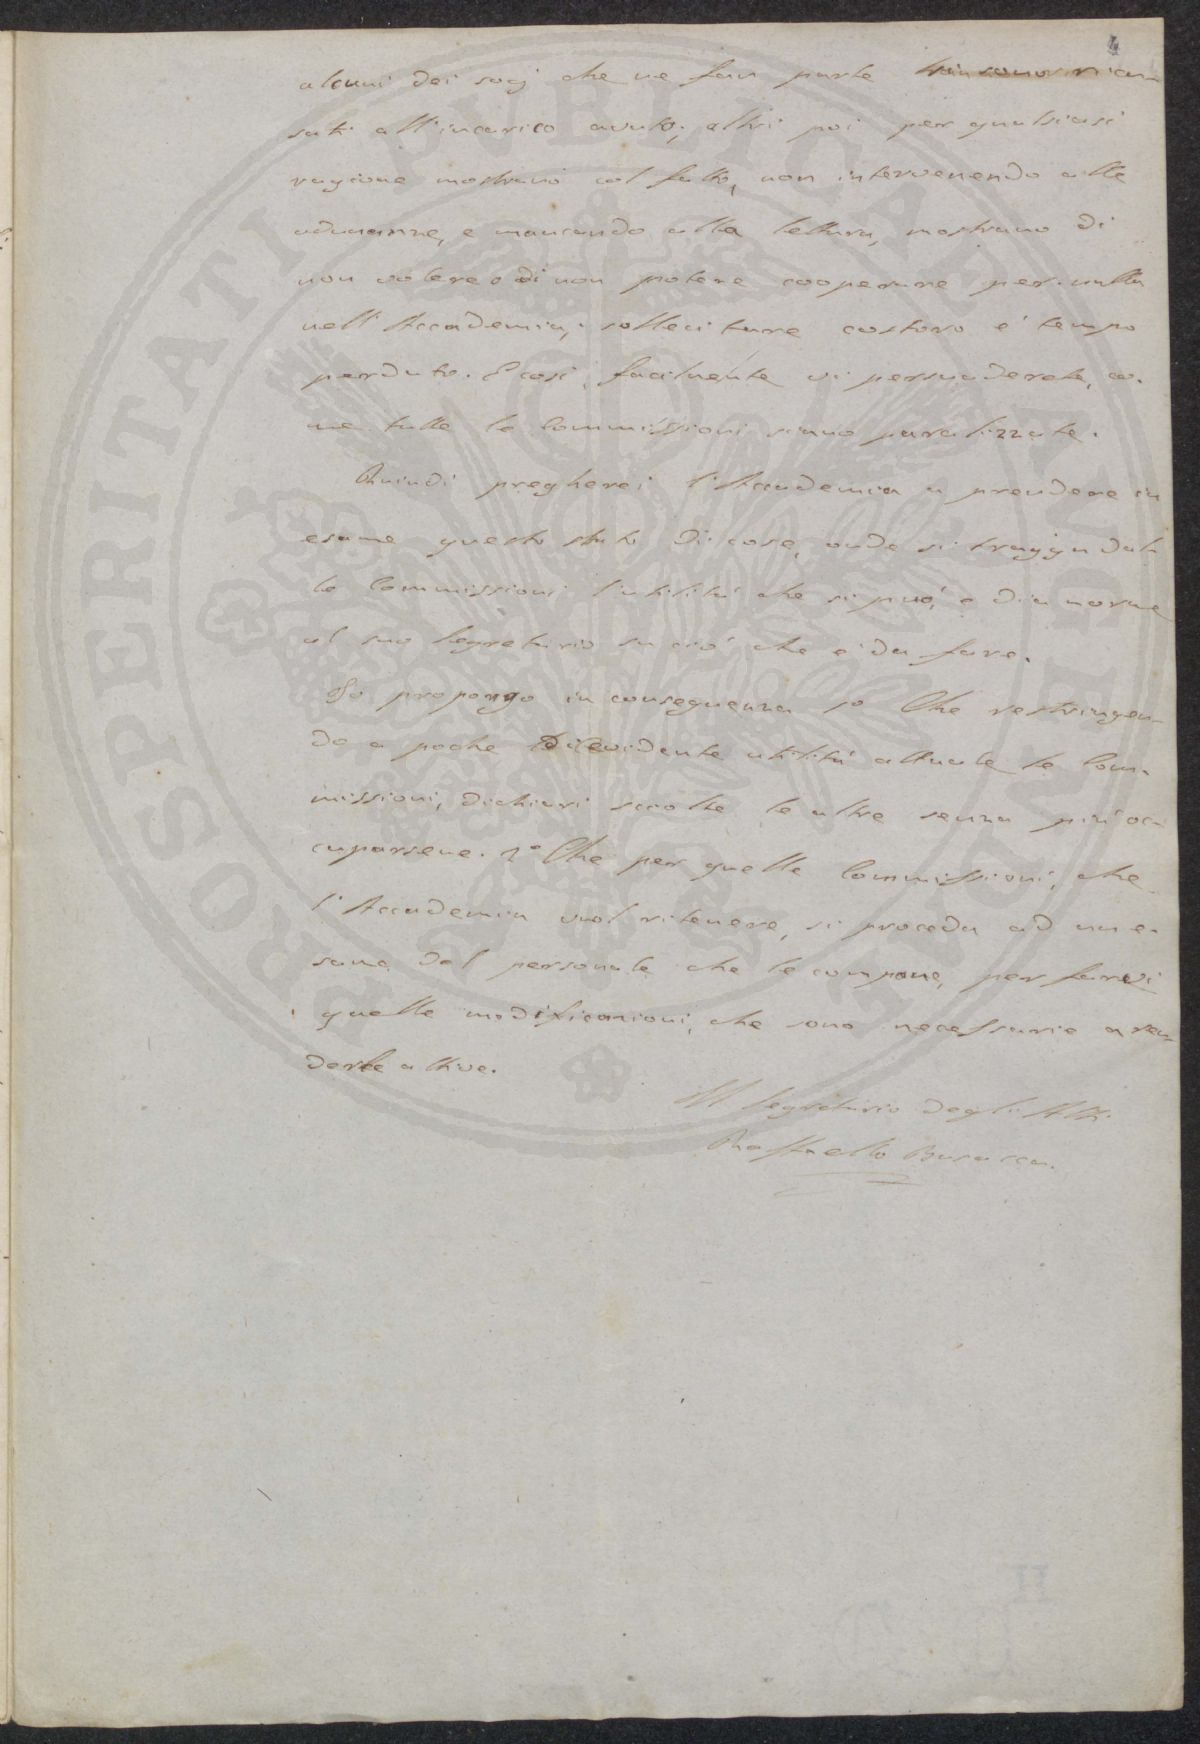 4
alcuni dei socj che ne fan parte si sono ricu-
sati all'incarico avuto; altri poi per qualsiasi
ragione mostrano col fatto, non intervenendo alle
adunanze, e mancando alla lettura, mostrano di
non volere o di non potere cooperare per nulla
nell'Accademia; sollecitare costoro è tempo
perduto. E così, facilmente vi persuaderete, co-
me tutte le Commissioni siano paralizzate.
Quindi pregherei l'Accademia a prendere in
esame questo stato di cose, onde si tragga dal-
le Commissioni l'utilità che si può, e dia norme
al suo Segretario su ciò che è da fare.
Io propongo in conseguenza 1o Che restringen-
do a poche di evidente utilità attuale le Com-
missioni, dichiari sciolte le altre senza più oc-
cuparsene. 2o Che per quelle Commissioni, che
l'Accademia vuol ritenere, si proceda ad un e-
same del personale che le compone, per farvi
quelle modificazioni, che sono necessarie a ren-
derle attive.
Il Segretario degli Atti
Raffaello Busacca.
PROSPERITATI PVBLICAE AVGENDAE